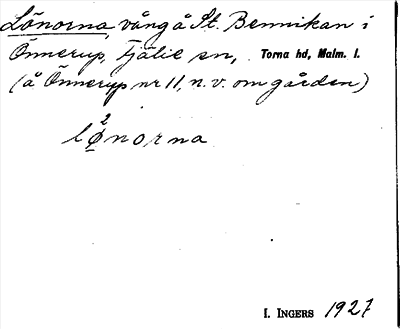 Lönorna, vång å St. Bennikan i
Önnerup, Fjälie sn, Torna hd, Malm. l.
(å Önnerup nr 11, n.v. om gården)
2
lø̣norna
I. INGERS 1927